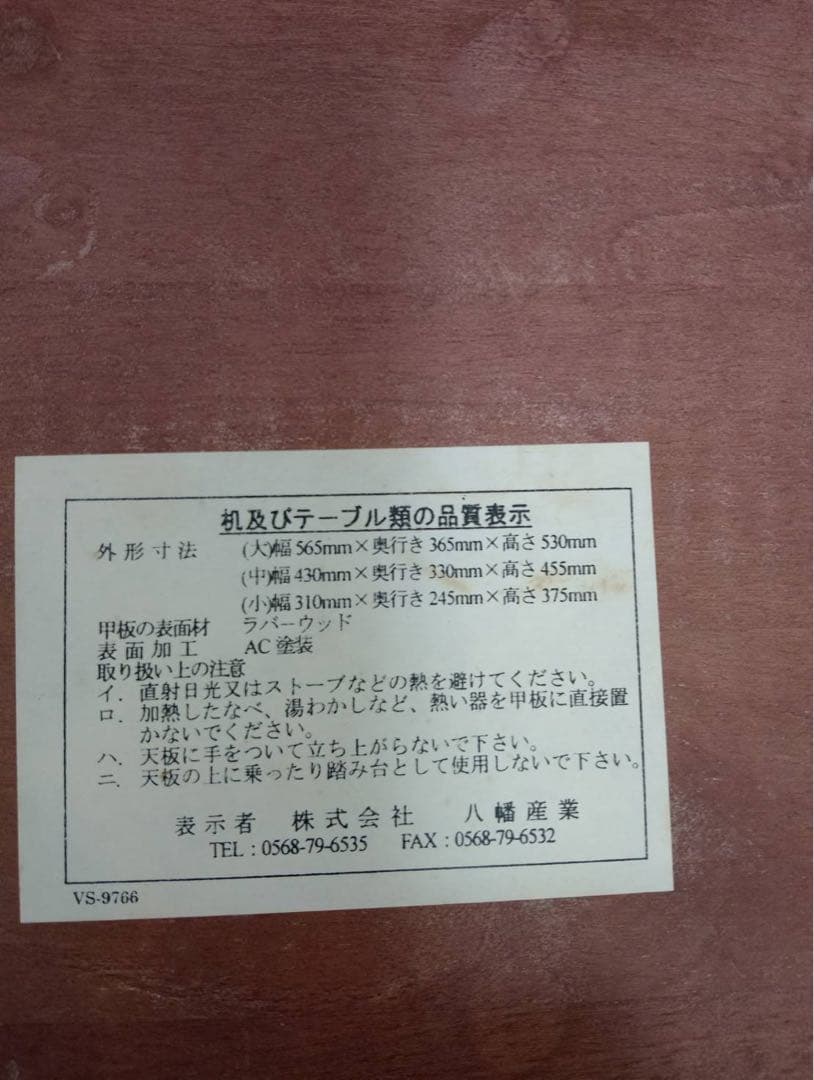 机及びテーブル類の品質表示
外形寸法 (大)幅565mm×奥行き365mm×高さ530mm
(中)幅430mm×奥行き330mm×高さ455mm
(小)幅310mm×奥行き245mm×高さ375mm
甲板の表面材 ラバーウッド
表面加工 AC塗装
取り扱い上の注意
イ．直射日光又はストーブなどの熱を避けてください。
ロ．加熱したなべ、湯わかしなど、熱い器を甲板に直接置
かないでください。
ハ．天板に手をついて立ち上がらないで下さい。
ニ．天板の上に乗ったり踏み台として使用しないで下さい。
表示者 株式会社 八幡産業
TEL：0568-79-6535 FAX：0568-79-6532
VS-9766